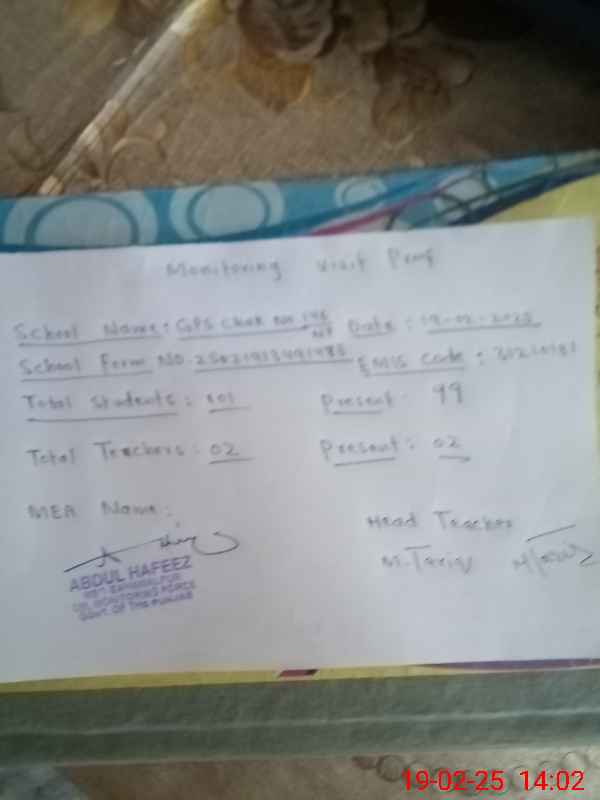 Monitoring Visit Proof
School Name: GPS Chak No. 146 Date: 19-02-2025
School Form No. EMIS Code:
Total Students: 101 Present: 99
Total Teachers: 02 Present: 02
MEA Name:
Head Teacher
M. Tariq
ABDUL HAFEEZ
MONITORING FORCE
GOVT. OF THE PUNJAB
19-02-25 14:02